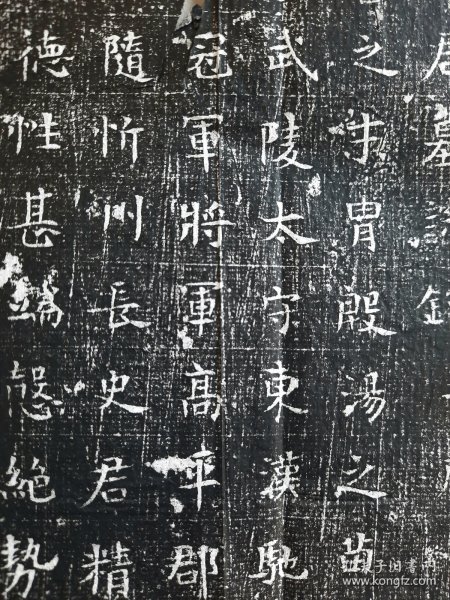 墓誌銘
之才冑殷湯之苗
武陵太守東漢馳
冠軍將軍髙平郡
隨忻州長史君精
德性甚端慤絕勢
孔夫子旧书网
www.kongfz.com